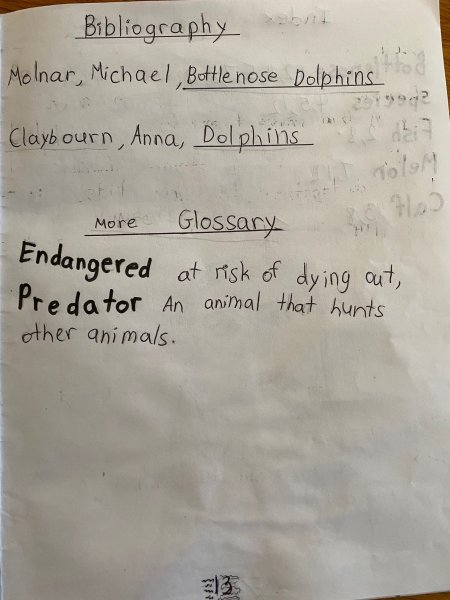 Bibliography
Molnar, Michael, Bottlenose Dolphins
Claybourn, Anna, Dolphins
More Glossary
Endangered at risk of dying out,
Predator An animal that hunts
other animals.
13